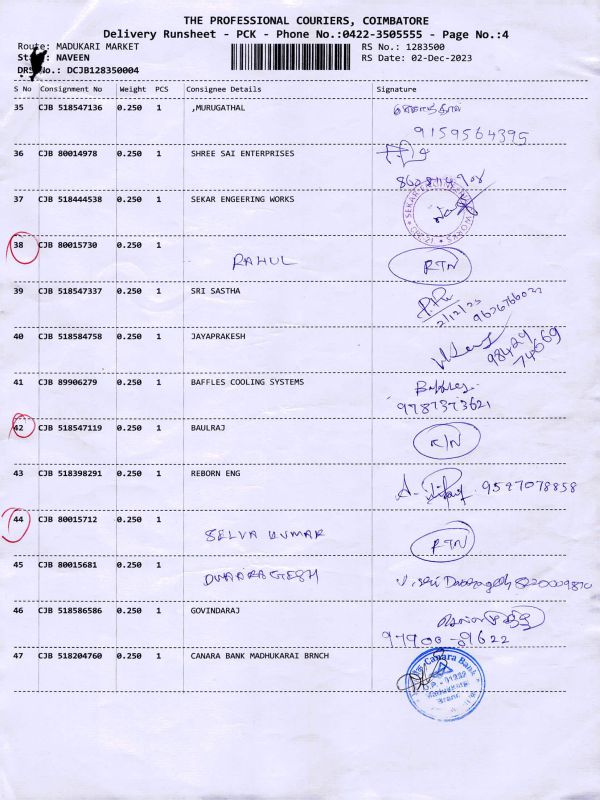 THE PROFESSIONAL COURIERS, COIMBATORE
Delivery Runsheet - PCK - Phone No.:0422-3505555 - Page No.:4
Route: MADUKARI MARKET
RS No.: 1283500
NAVEEN
RS Date: 02-Dec-2023
DRS No.: DCJB128350004
S No Consignment No Weight PCS Consignee Details Signature
35 CJB 518547136 0.250 1 ,MURUGATHAL
9159564395
36 CJB 80014978 0.250 1 SHREE SAI ENTERPRISES
37 CJB 518444538 0.250 1 SEKAR ENGEERING WORKS
38 CJB 80015730 0.250 1
RAHUL RTN
39 CJB 518547337 0.250 1 SRI SASTHA
2/12/23
40 CJB 518584758 0.250 1 JAYAPRAKESH
98429
74669
41 CJB 89906279 0.250 1 BAFFLES COOLING SYSTEMS Baffles
9787373621
42 CJB 518547119 0.250 1 BAULRAJ
RTN
43 CJB 518398291 0.250 1 REBORN ENG
9597078858
44 CJB 80015712 0.250 1
SELVA KUMAR RTN
45 CJB 80015681 0.250 1
DWARAGESH 8220009870
46 CJB 518586586 0.250 1 GOVINDARAJ
97900-89622
47 CJB 518204760 0.250 1 CANARA BANK MADHUKARAI BRNCH
Canara Bank